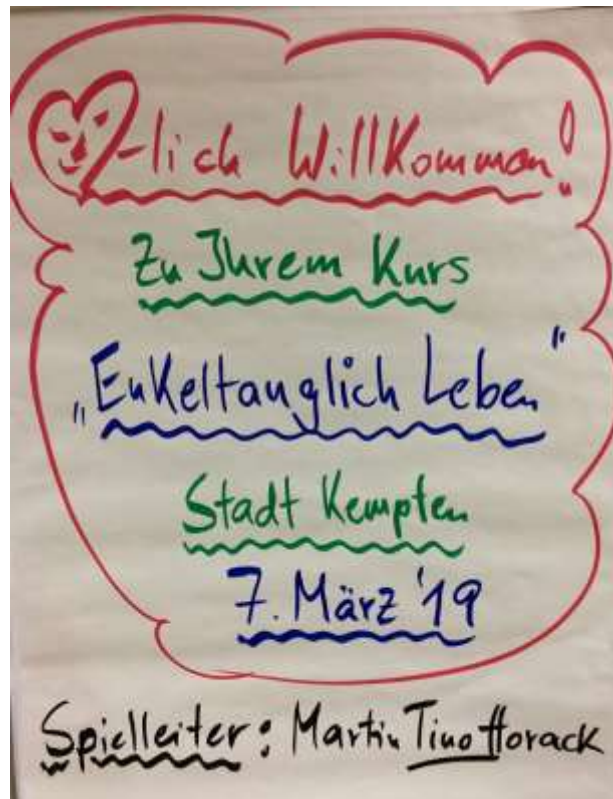 -lich Willkommen!
Zu Ihrem Kurs
„Enkeltauglich Leben"
Stadt Kempten
7. März '19
Spielleiter: Martin Tino Horack